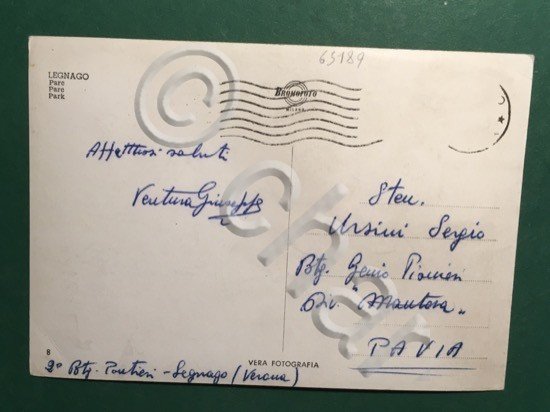 65189
LEGNAGO
Parc
Parc
Park
BROMOFOTO
MILANO
Affettuosi saluti
Ventura Giuseppe
Sten.
Ursini Sergio
Btg. Genio Pionieri
Div. "Mantova"
PAVIA
8
VERA FOTOGRAFIA
2° Btg. Pontieri - Legnago (Verona)
© char